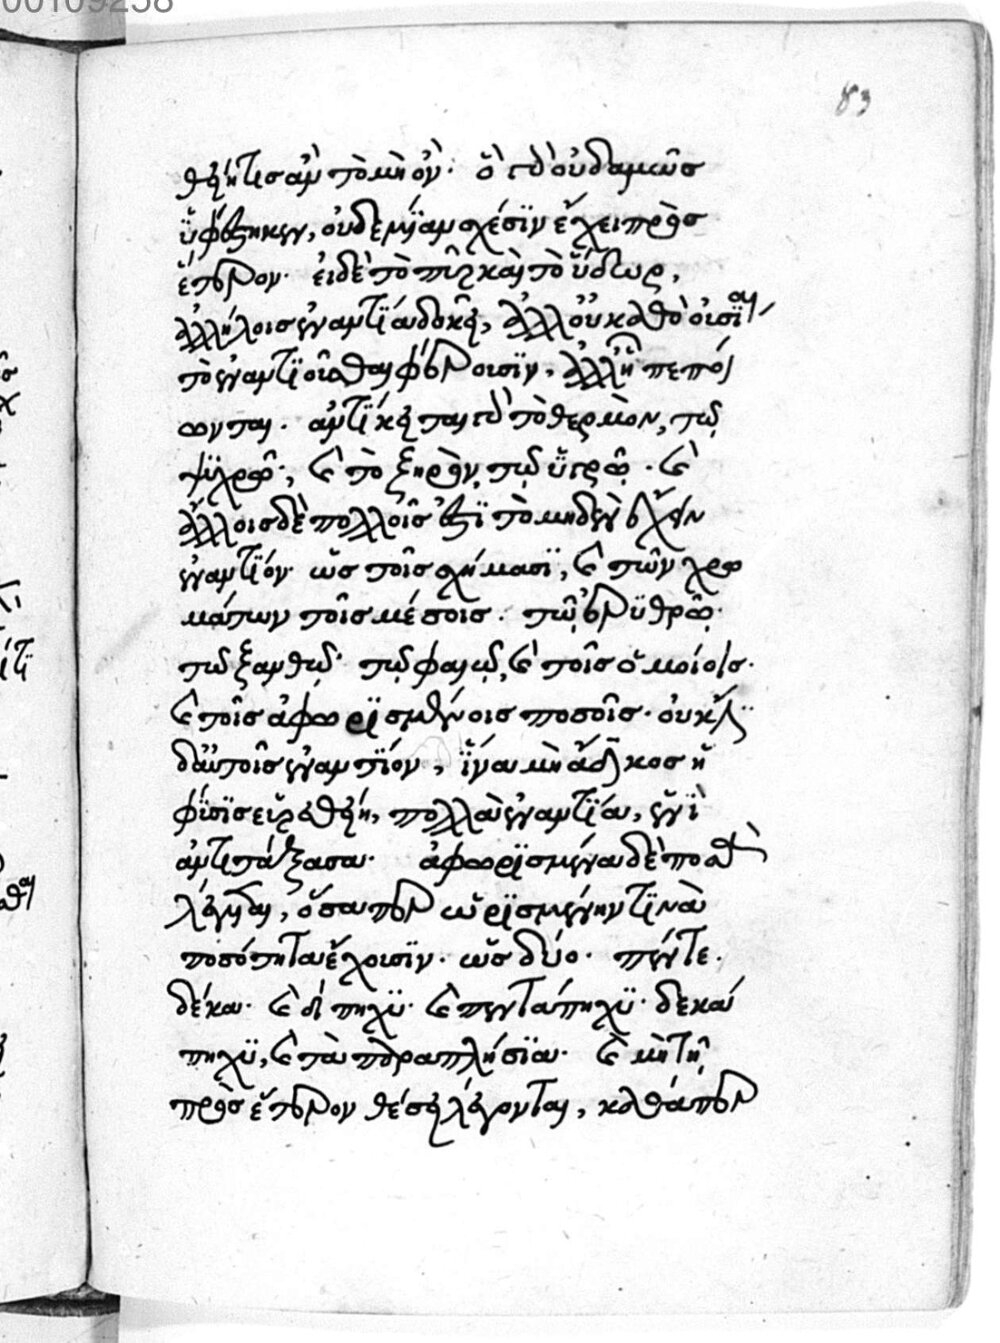 00109258
83
θείη τις ἂν τὸ μὴ ὄν· ὃ τὸ οὐδαμῶς
ὑφέστηκεν, οὐδεμίαν σχέσιν ἔχει πρὸς
ἕτερον· εἰ δὲ τὸ πῦρ καὶ τὸ ὕδωρ,
ἀλλήλοις ἐναντία δοκεῖ, ἀλλ' οὐ καθὸ οὐσίαι
τὸ ἐναντιοῦσθαι φέρουσιν, ἀλλ' ᾗ πεποί
ωνται. ἀντίκειται τὸ θερμὸν, τῷ
ψυχρῷ· καὶ τὸ ξηρὸν, τῷ ὑγρῷ. καὶ
ἄλλοις δὲ πολλοῖς ἐστι τὸ μηδὲν ἔχειν
ἐναντίον· ὡς τοῖς σχήμασι, καὶ τῶν χρω
μάτων τοῖς μέσοις. τῷ ἐρυθρῷ·
τῷ ξανθῷ· τῷ φαιῷ, καὶ τοῖς ὁμοίοις·
καὶ τοῖς ἀφωρισμένοις ποσοῖς· οὐκ
τοῖς ἐναντίον, ἵνα μὴ ἄδικος ἡ
φύσις εὑρεθείη, πολλὰ ἐναντία, ἑνὶ
ἀντιτάξασα· ἀφωρισμένα δὲ ποσὰ
λέγεται, ὅσαπερ ὡρισμένην τινὰ
ποσότητα ἔχουσιν· ὡς δύο· πέντε·
δέκα· καὶ δίπηχυ· καὶ πεντάπηχυ· δεκά
πηχυ, καὶ τὰ παραπλήσια· καὶ μὴ τῇ
πρὸς ἕτερον θέσει λέγονται, καθάπερ